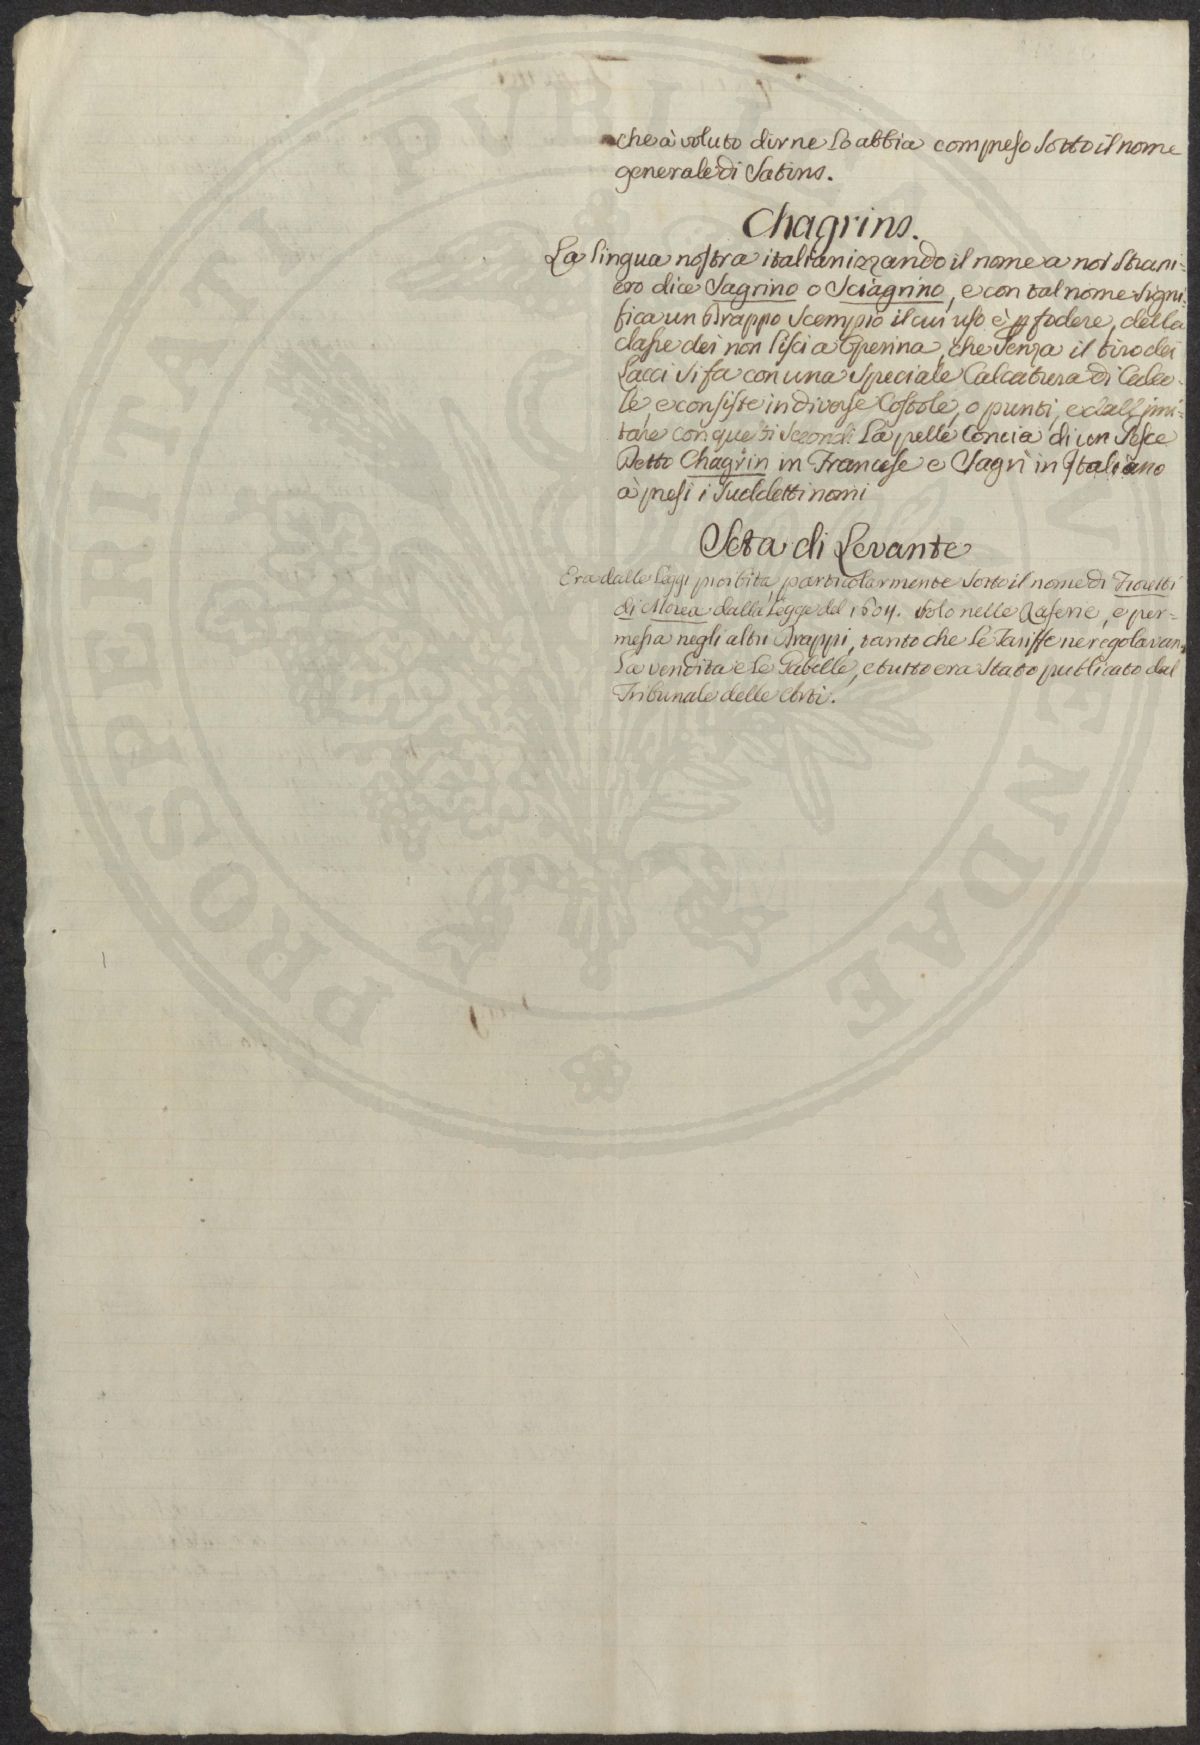 che à voluto dirne Lo abbia compreso Sotto il nome
generale di Satins.
Chagrins.
La lingua nostra italianizzando il nome a noi Strani-
ero dice Sagrino o Sciagrino, e con tal nome Signi-
fica un Drappo Scempio il cui uso è p fodere, della
classe dei non lisci a Operina, che Senza il tiro dei
Lacci si fa con una Speciale Calcatura di Calco-
le, e consiste in diverse Costole, o punti, e dall' imi-
tare con questi Secondi La pelle Concia di un Pesce
Detto Chagrin in Francese e Sagrì in Italiano
à presi i Suddetti nomi
Seta di Levante
Era dalle Leggi proibita, particolarmente Sotto il nome di Fioretti
di Morea dalla Legge del 1504. Solo nelle Raserie, e per-
messa negli altri Drappi, tanto che Le Tariffe ne regolavan
La vendita e Le Gabelle, e tutto era Stato publicato dal
Tribunale delle Arti.
PROSPERITATI PVBLICAE AVGENDAE